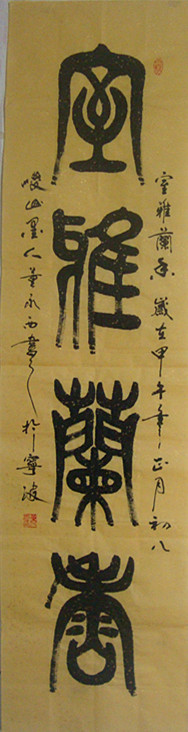 室雅蘭香
室雅蘭香歲在甲午年正月初八
峻山墨人董永西書於寧波